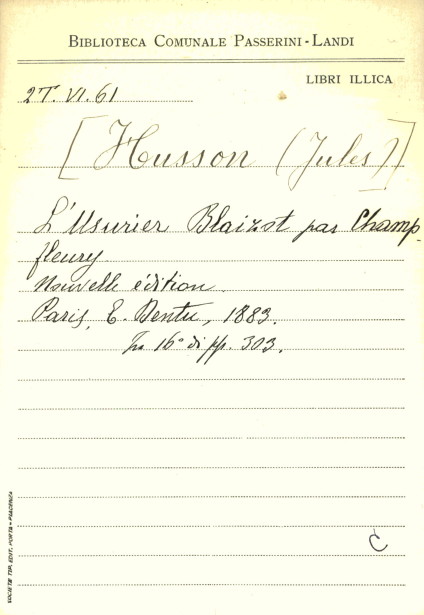 BIBLIOTECA COMUNALE PASSERINI-LANDI
LIBRI ILLICA
2T. VI. 61
[Husson (Jules)]
L'Usurier Blaizot par Champ-
fleury
Nouvelle édition.
Paris, E. Dentu, 1883.
In 16° di pp. 303.
C
SOCIETÀ TIP. EDIT. PORTA - PIACENZA